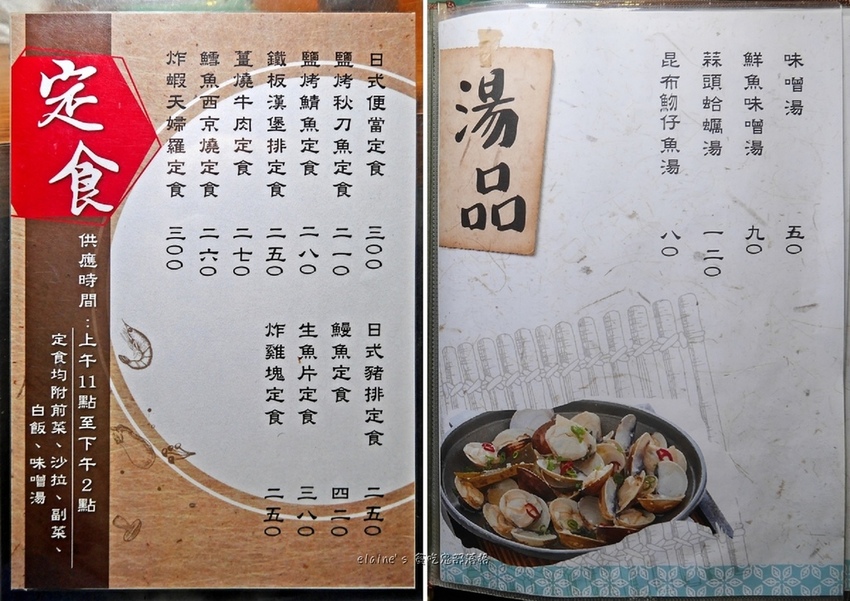 定食
供應時間：上午11點至下午2點
定食均附前菜、沙拉、副菜、
白飯、味噌湯
日式便當定食 三〇〇
鹽烤秋刀魚定食 二一〇
鹽烤鯖魚定食 二八〇
鐵板漢堡排定食 二五〇
薑燒牛肉定食 二七〇
鱈魚西京燒定食 二六〇
炸蝦天婦羅定食 三〇〇
日式豬排定食 二五〇
鰻魚定食 四二〇
生魚片定食 三八〇
炸雞塊定食 二五〇
湯品
味噌湯 五〇
鮮魚味噌湯 九〇
蒜頭蛤蠣湯 一二〇
昆布魩仔魚湯 八〇